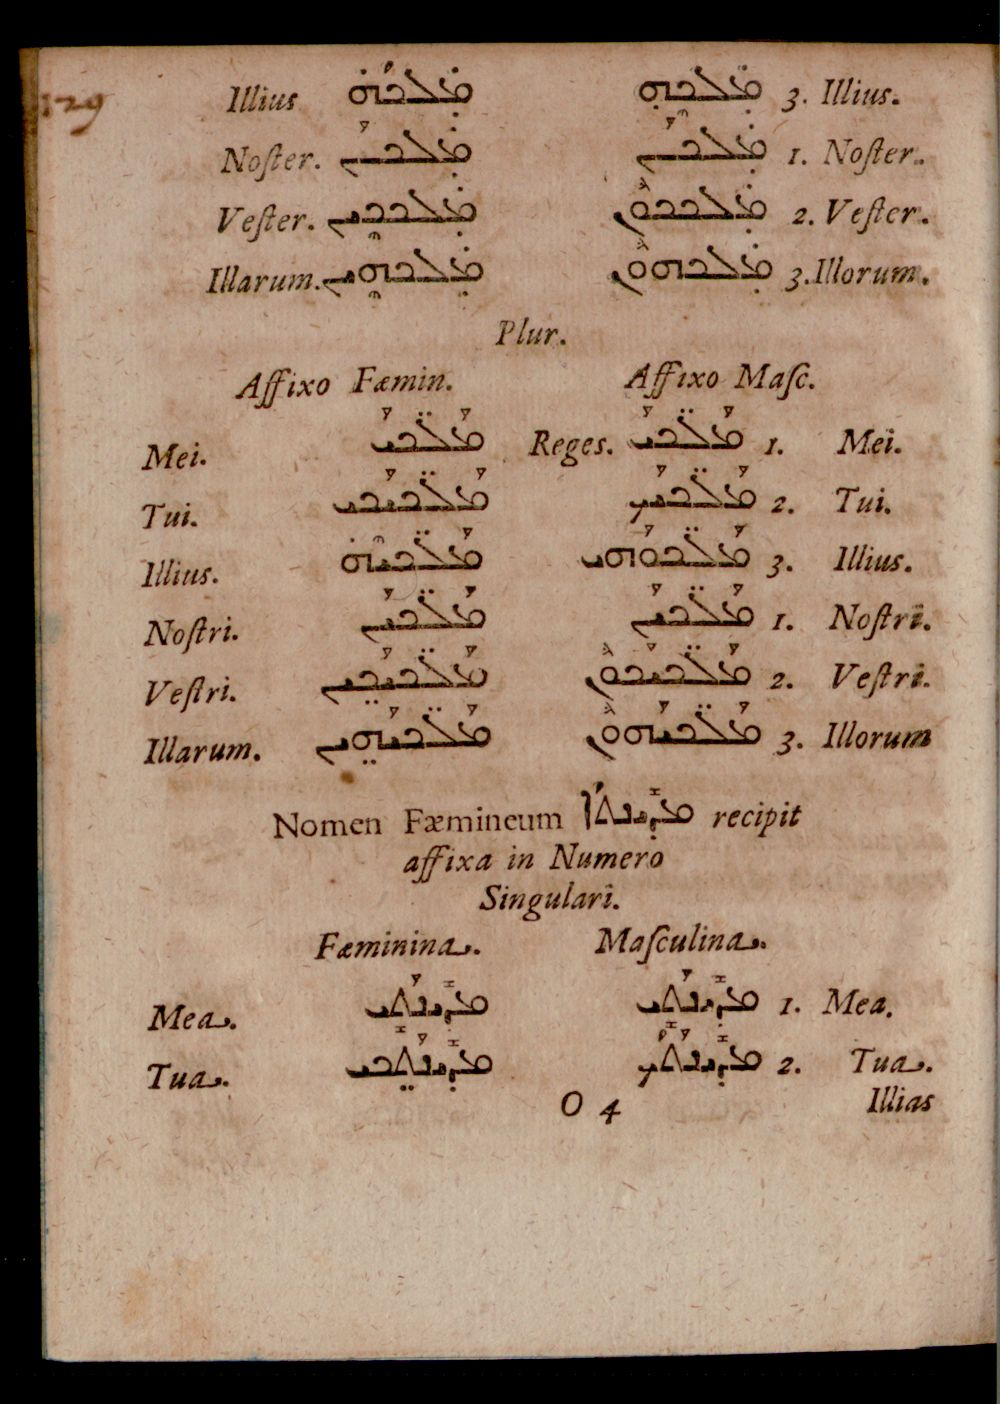 129
Illius ܡܠܟܗ ܡܠܟܗ 3. Illius.
Noſter. ܡܠܟܢ ܡܠܟܢ 1. Noſter.
Veſter. ܡܠܟܟܝܢ ܡܠܟܟܘܢ 2. Veſter.
Illarum. ܡܠܟܗܝܢ ܡܠܟܗܘܢ 3. Illorum.
Plur.
Affixo Fæmin. Affixo Maſc.
Mei. ܡܠܟܝ Reges. ܡܠܟܝ 1. Mei.
Tui. ܡܠܟܝܟܝ ܡܠܟܝܟ 2. Tui.
Illius. ܡܠܟܝܗ ܡܠܟܘܗܝ 3. Illius.
Noſtri. ܡܠܟܝܢ ܡܠܟܝܢ 1. Noſtri.
Veſtri. ܡܠܟܝܟܝܢ ܡܠܟܝܟܘܢ 2. Veſtri.
Illarum. ܡܠܟܝܗܝܢ ܡܠܟܝܗܘܢ 3. Illorum
Nomen Fæmineum ܡܕܝܢܬܐ recipit
affixa in Numero
Singulari.
Fæminina. Maſculina.
Mea. ܡܕܝܢܬܝ ܡܕܝܢܬܝ 1. Mea.
Tua. ܡܕܝܢܬܟܝ ܡܕܝܢܬܟ 2. Tua.
O 4 Illias